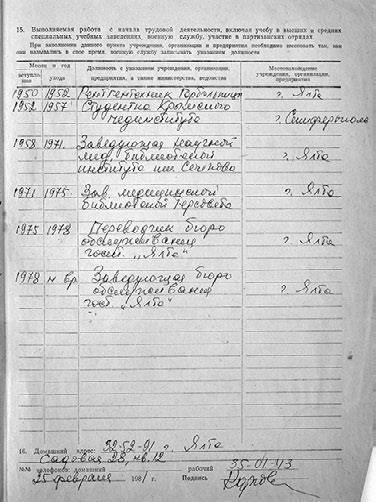 15. Выполняемая работа с начала трудовой деятельности, включая учебу в высших и средних
специальных учебных заведениях, военную службу, участие в партизанских отрядах
При заполнении данного пункта учреждения, организации и предприятия необходимо именовать так, как
они назывались в свое время, военную службу записывать с указанием должности
Месяц и год
вступления
ухода
Должность с указанием учреждения, организации,
предприятия, а также министерства, ведомства
Местонахождение
учреждения, организации,
предприятия
1950 1952 Рентгентехник г. Ялта
1952 1957 Студентка Крымского
мединститута г. Симферополь
1958 1971 Заведующая научной
мед. библиотекой
института им. Сеченова г. Ялта
1971 1975 Зав. медицинской
библиотекой г. Ялта
1975 1978 Переводчик бюро
обслуживания
гост. „Ялта" г. Ялта
1978 н. вр. Заведующая бюро
обслуживания
гост. „Ялта" г. Ялта
16. Домашний адрес: 32-52-91 г. Ялта
Садовая 28, кв. 12
№№ телефонов: домашний рабочий 35-01-43
25 февраля 1981 г. Подпись